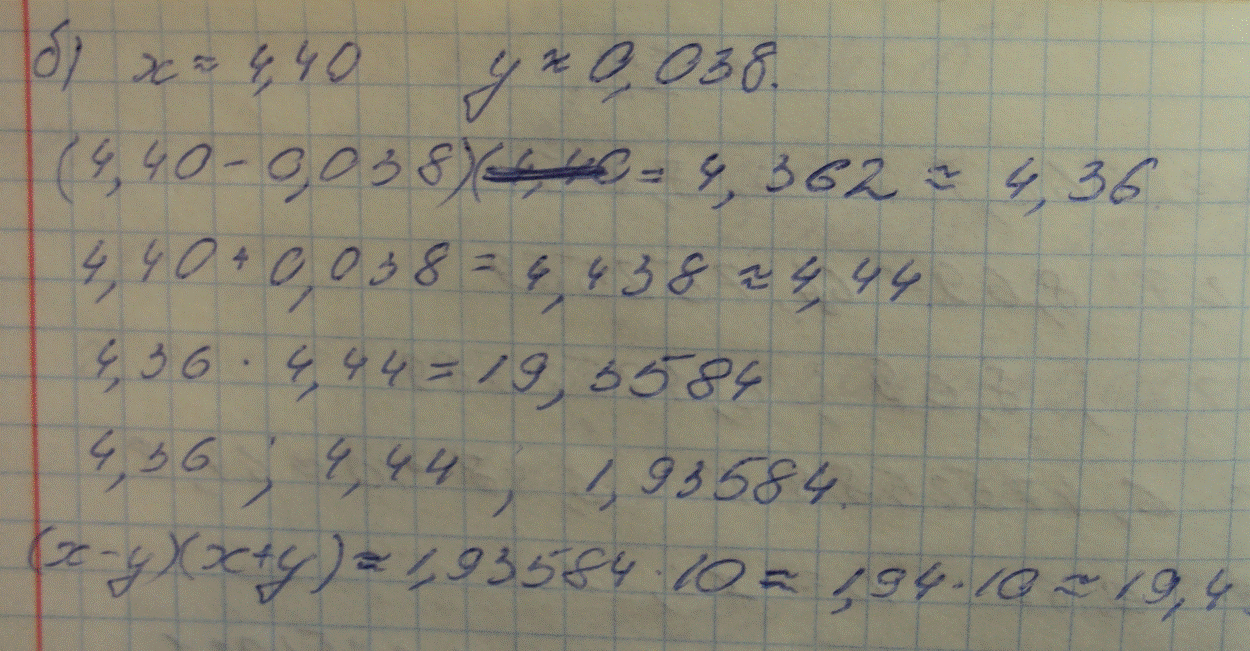 б) x ≈ 4,40 y ≈ 0,038.
(4,40 - 0,038)(4,40 = 4,362 ≈ 4,36.
4,40 + 0,038 = 4,438 ≈ 4,44
4,36 · 4,44 = 19,3584
4,36 ; 4,44 ; 1,93584.
(x-y)(x+y) ≈ 1,93584 · 10 ≈ 1,94 · 10 ≈ 19,4.